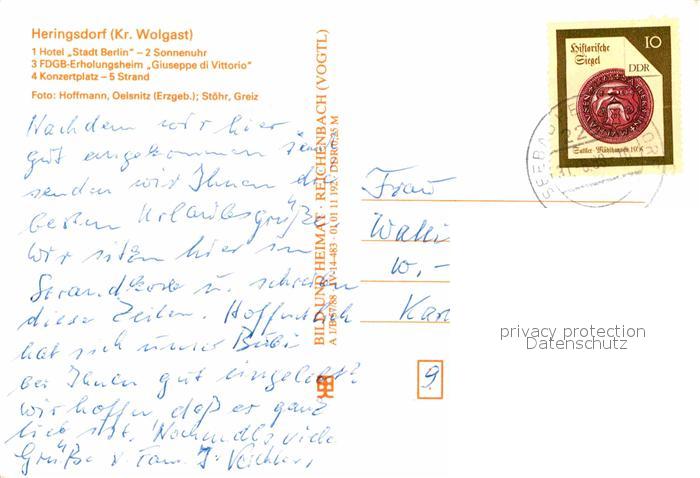 Heringsdorf (Kr. Wolgast)
1 Hotel „Stadt Berlin" – 2 Sonnenuhr
3 FDGB-Erholungsheim „Giuseppe di Vittorio"
4 Konzertplatz – 5 Strand
Foto: Hoffmann, Oelsnitz (Erzgeb.); Stöhr, Greiz
Nachdem wir hier
gut angekommen
senden wir Ihnen die
besten Urlaubsgrüße.
Wir sitzen hier im
Strandkorb u. schreiben
diese Zeilen. Hoffentlich
hat sich unser Bubi
bei Ihnen gut eingelebt.
wir hoffen, daß er ganz
lieb ist. Nochmals viele
Grüße v. Fam.
BILD UND HEIMAT · REICHENBACH (VOGTL)
Historische
Siegel
10
DDR
Sattler · Mühlhausen
Frau
W
W,-
Kar
9
privacy protection
Datenschutz